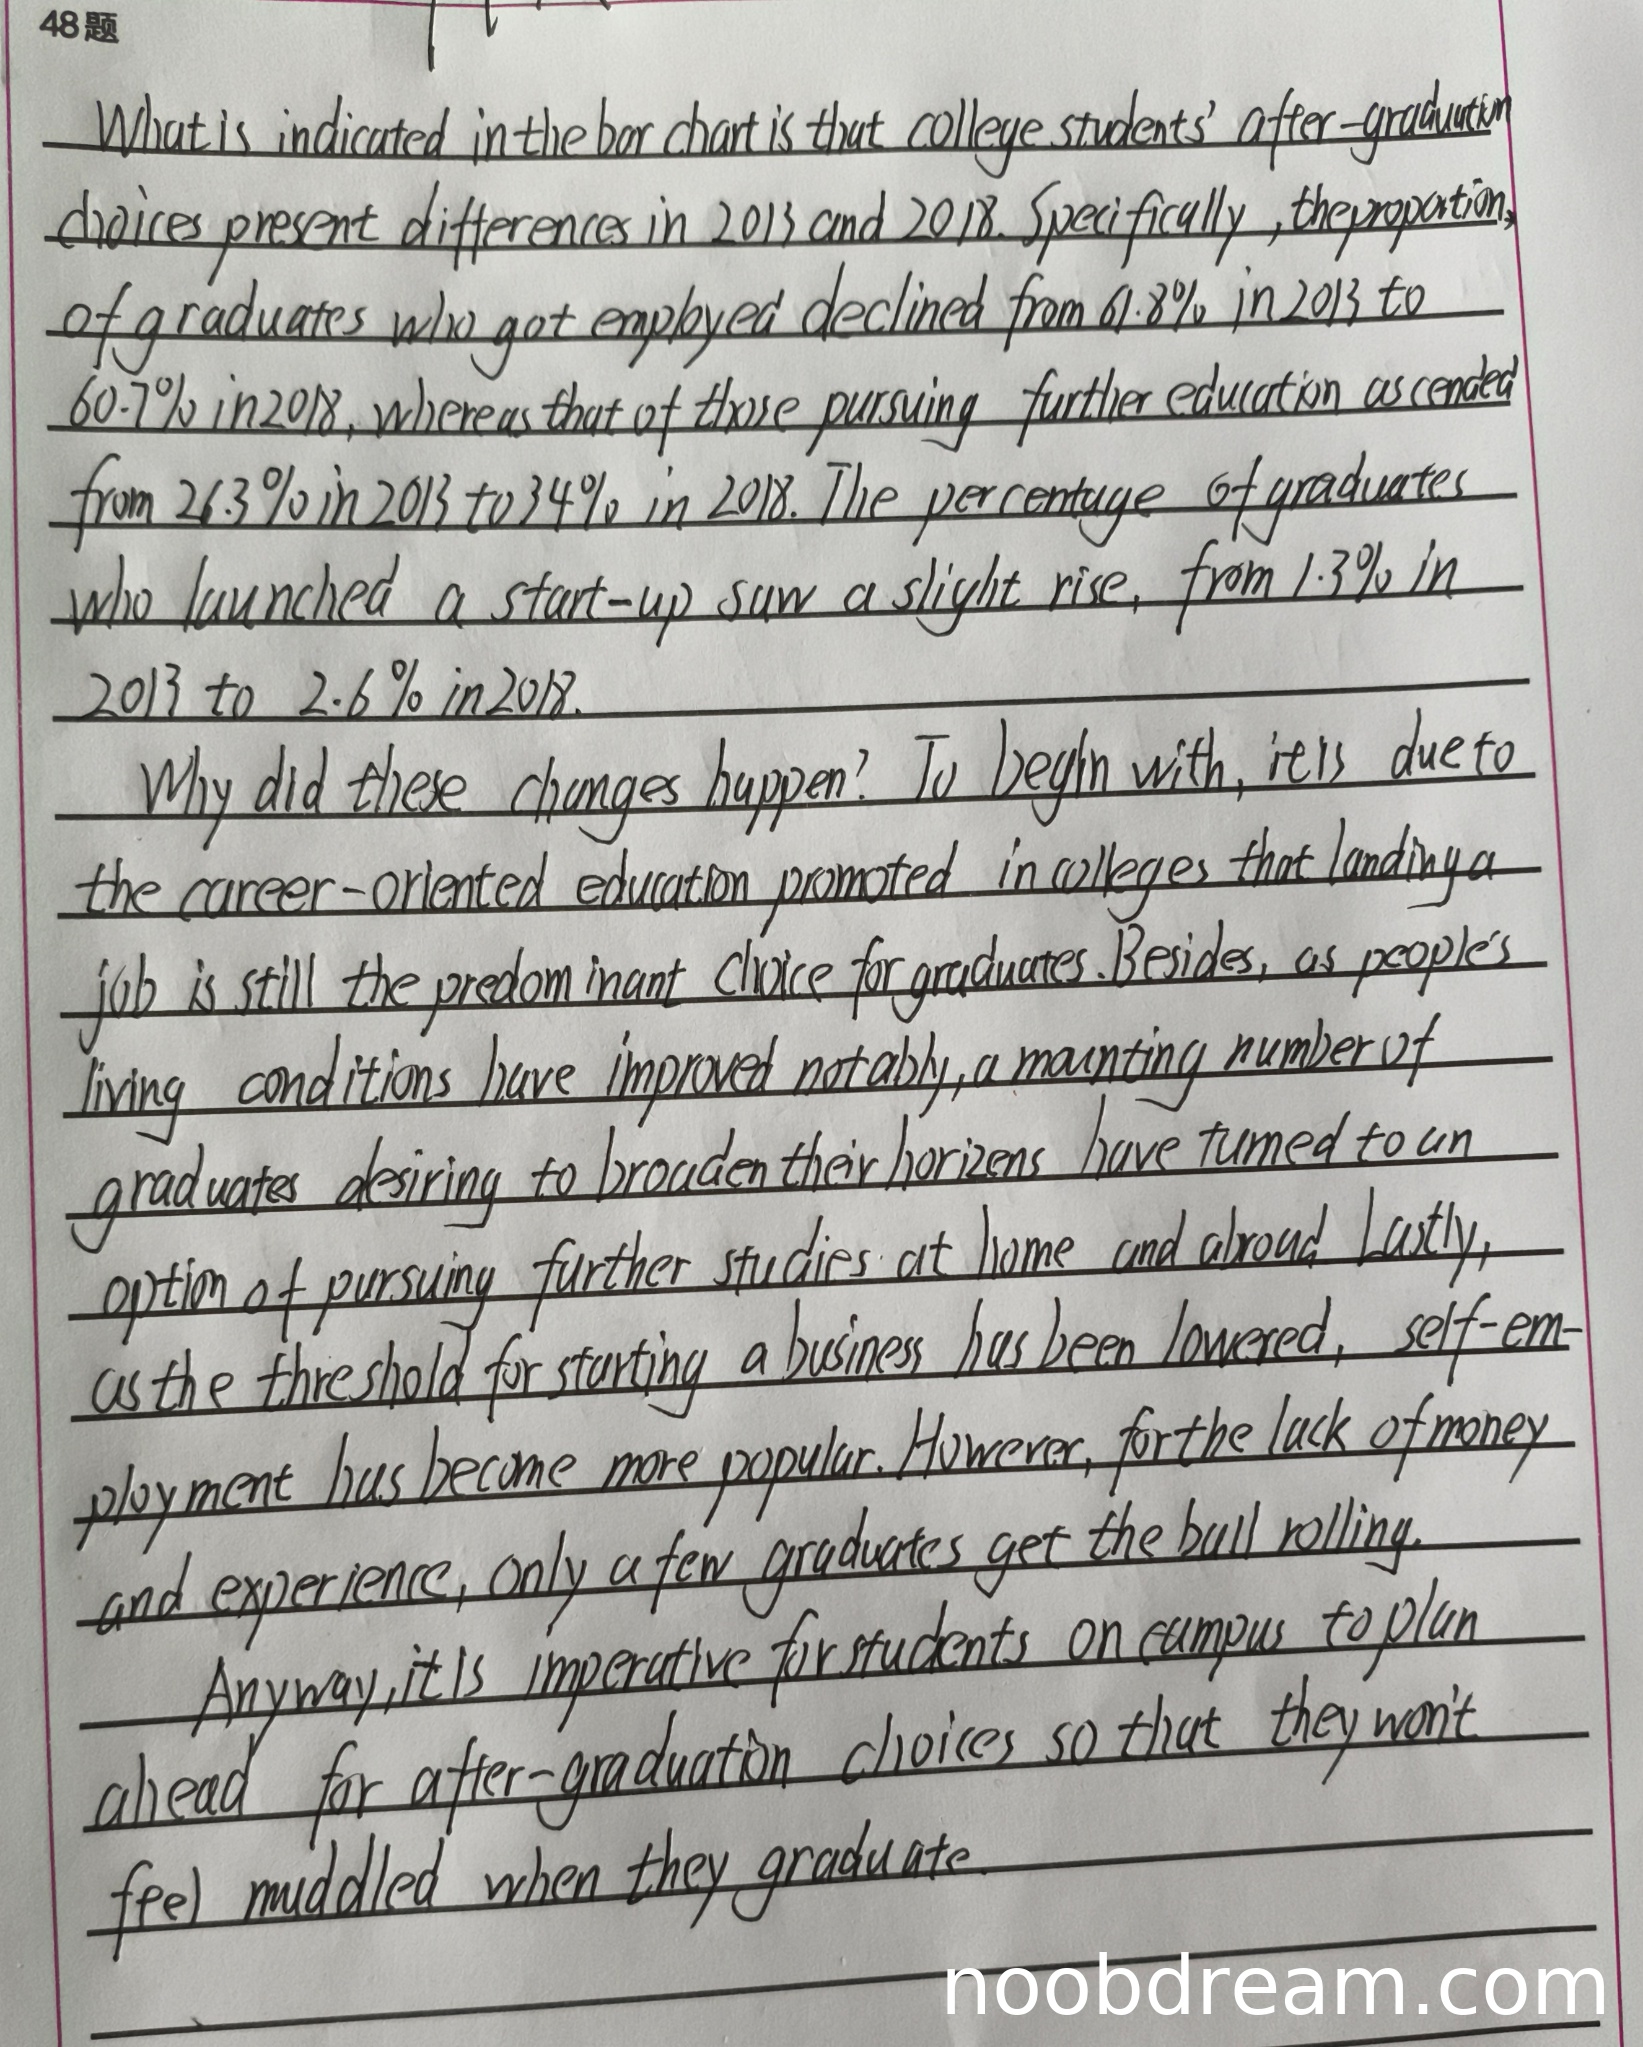 48题
What is indicated in the bar chart is that college students' after-graduation
choices present differences in 2013 and 2018. Specifically, the proportion
of graduates who got employed declined from 61.8% in 2013 to
60.7% in 2018, whereas that of those pursuing further education ascended
from 26.3% in 2013 to 34% in 2018. The percentage of graduates
who launched a start-up saw a slight rise, from 1.3% in
2013 to 2.6% in 2018.
Why did these changes happen? To begin with, it is due to
the career-oriented education promoted in colleges that landing a
job is still the predominant choice for graduates. Besides, as people's
living conditions have improved notably, a mounting number of
graduates desiring to broaden their horizens have turned to an
option of pursuing further studies at home and abroad Lastly,
as the threshold for starting a business has been lowered, self-em-
ployment has become more popular. However, for the lack of money
and experience, only a few graduates get the ball rolling.
Anyway, it is imperative for students on campus to plan
ahead for after-graduation choices so that they won't
feel muddled when they graduate.
noobdream.com